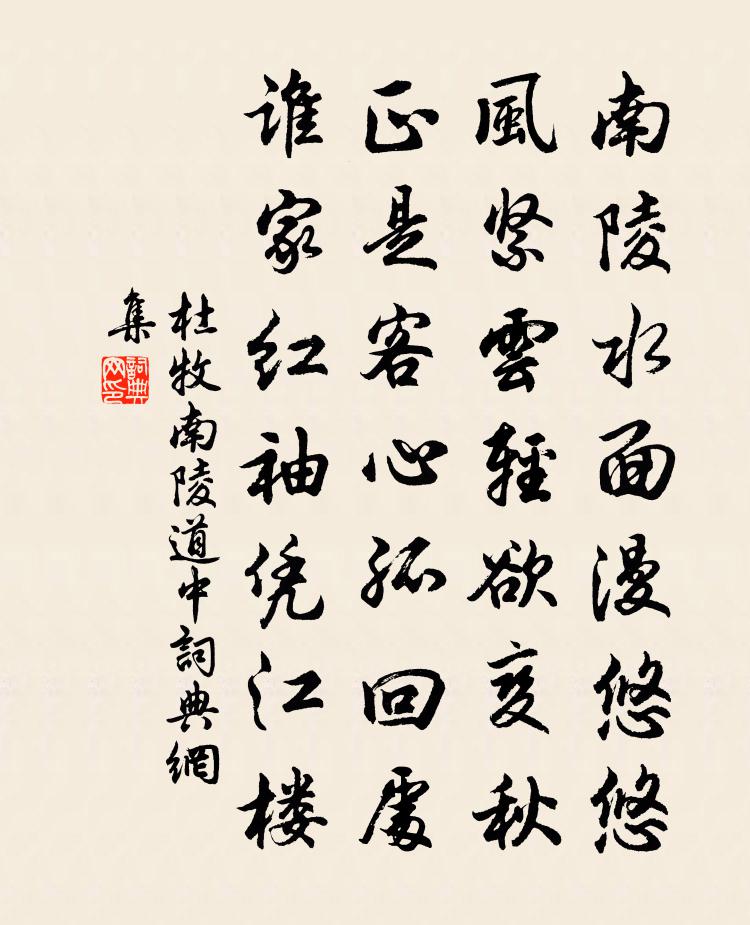 南陵水面漫悠悠
風紧雲輕欲变秋
正是客心孤回處
谁家红袖凭江楼
杜牧南陵道中詞典網
集
詞典
网印